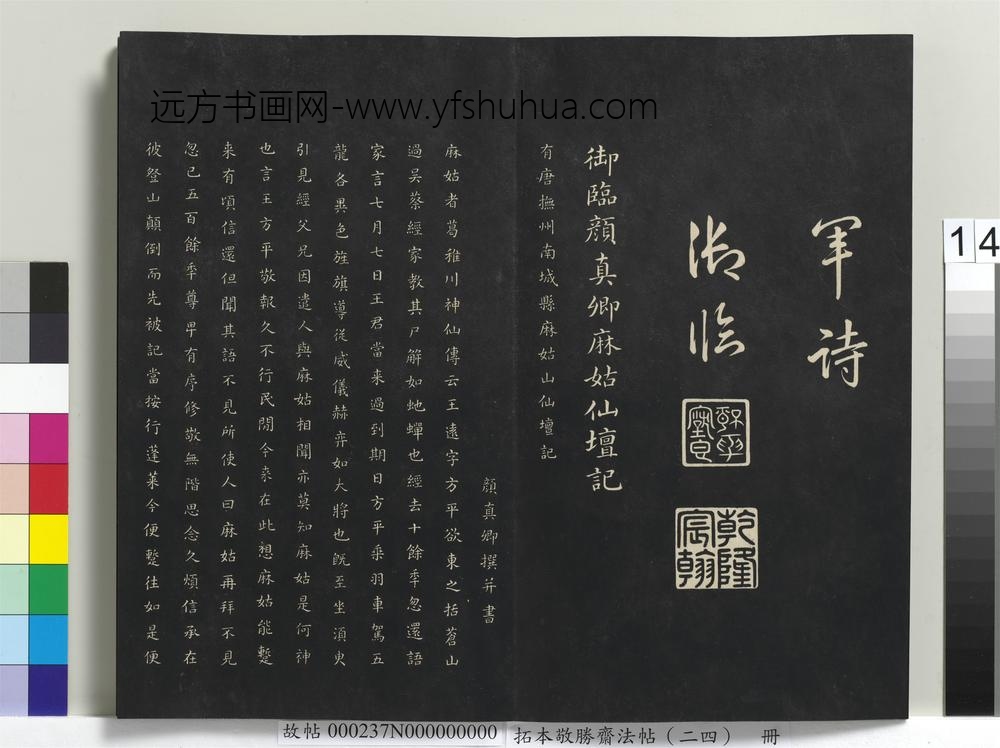 远方书画网-www.yfshuhua.com
軍詩
御臨
乾隆宸翰
御臨顏真卿麻姑仙壇記
有唐撫州南城縣麻姑山仙壇記
顏真卿撰并書
麻姑者葛稚川神仙傳云王遠字方平欲東之括蒼山
過吳蔡經家教其尸解如虵蟬也經去十餘季忽還語
家言七月七日王君當来過到期日方平乘羽車駕五
龍各異色旌旗導從威儀赫弈如大將也旣至坐湏臾
引見經父兄因遣人與麻姑相聞亦莫知麻姑是何神
也言王方平敬報久不行民間今来在此想麻姑能蹔
来有頃信還但聞其語不見所使人曰麻姑再拜不見
忽已五百餘季尊卑有序修敬無階思念久煩信承在
彼登山顛倒而先被記當按行蓬萊今便蹔往如是便
14
故帖 000237N000000000
拓本敬勝齋法帖（二四） 冊